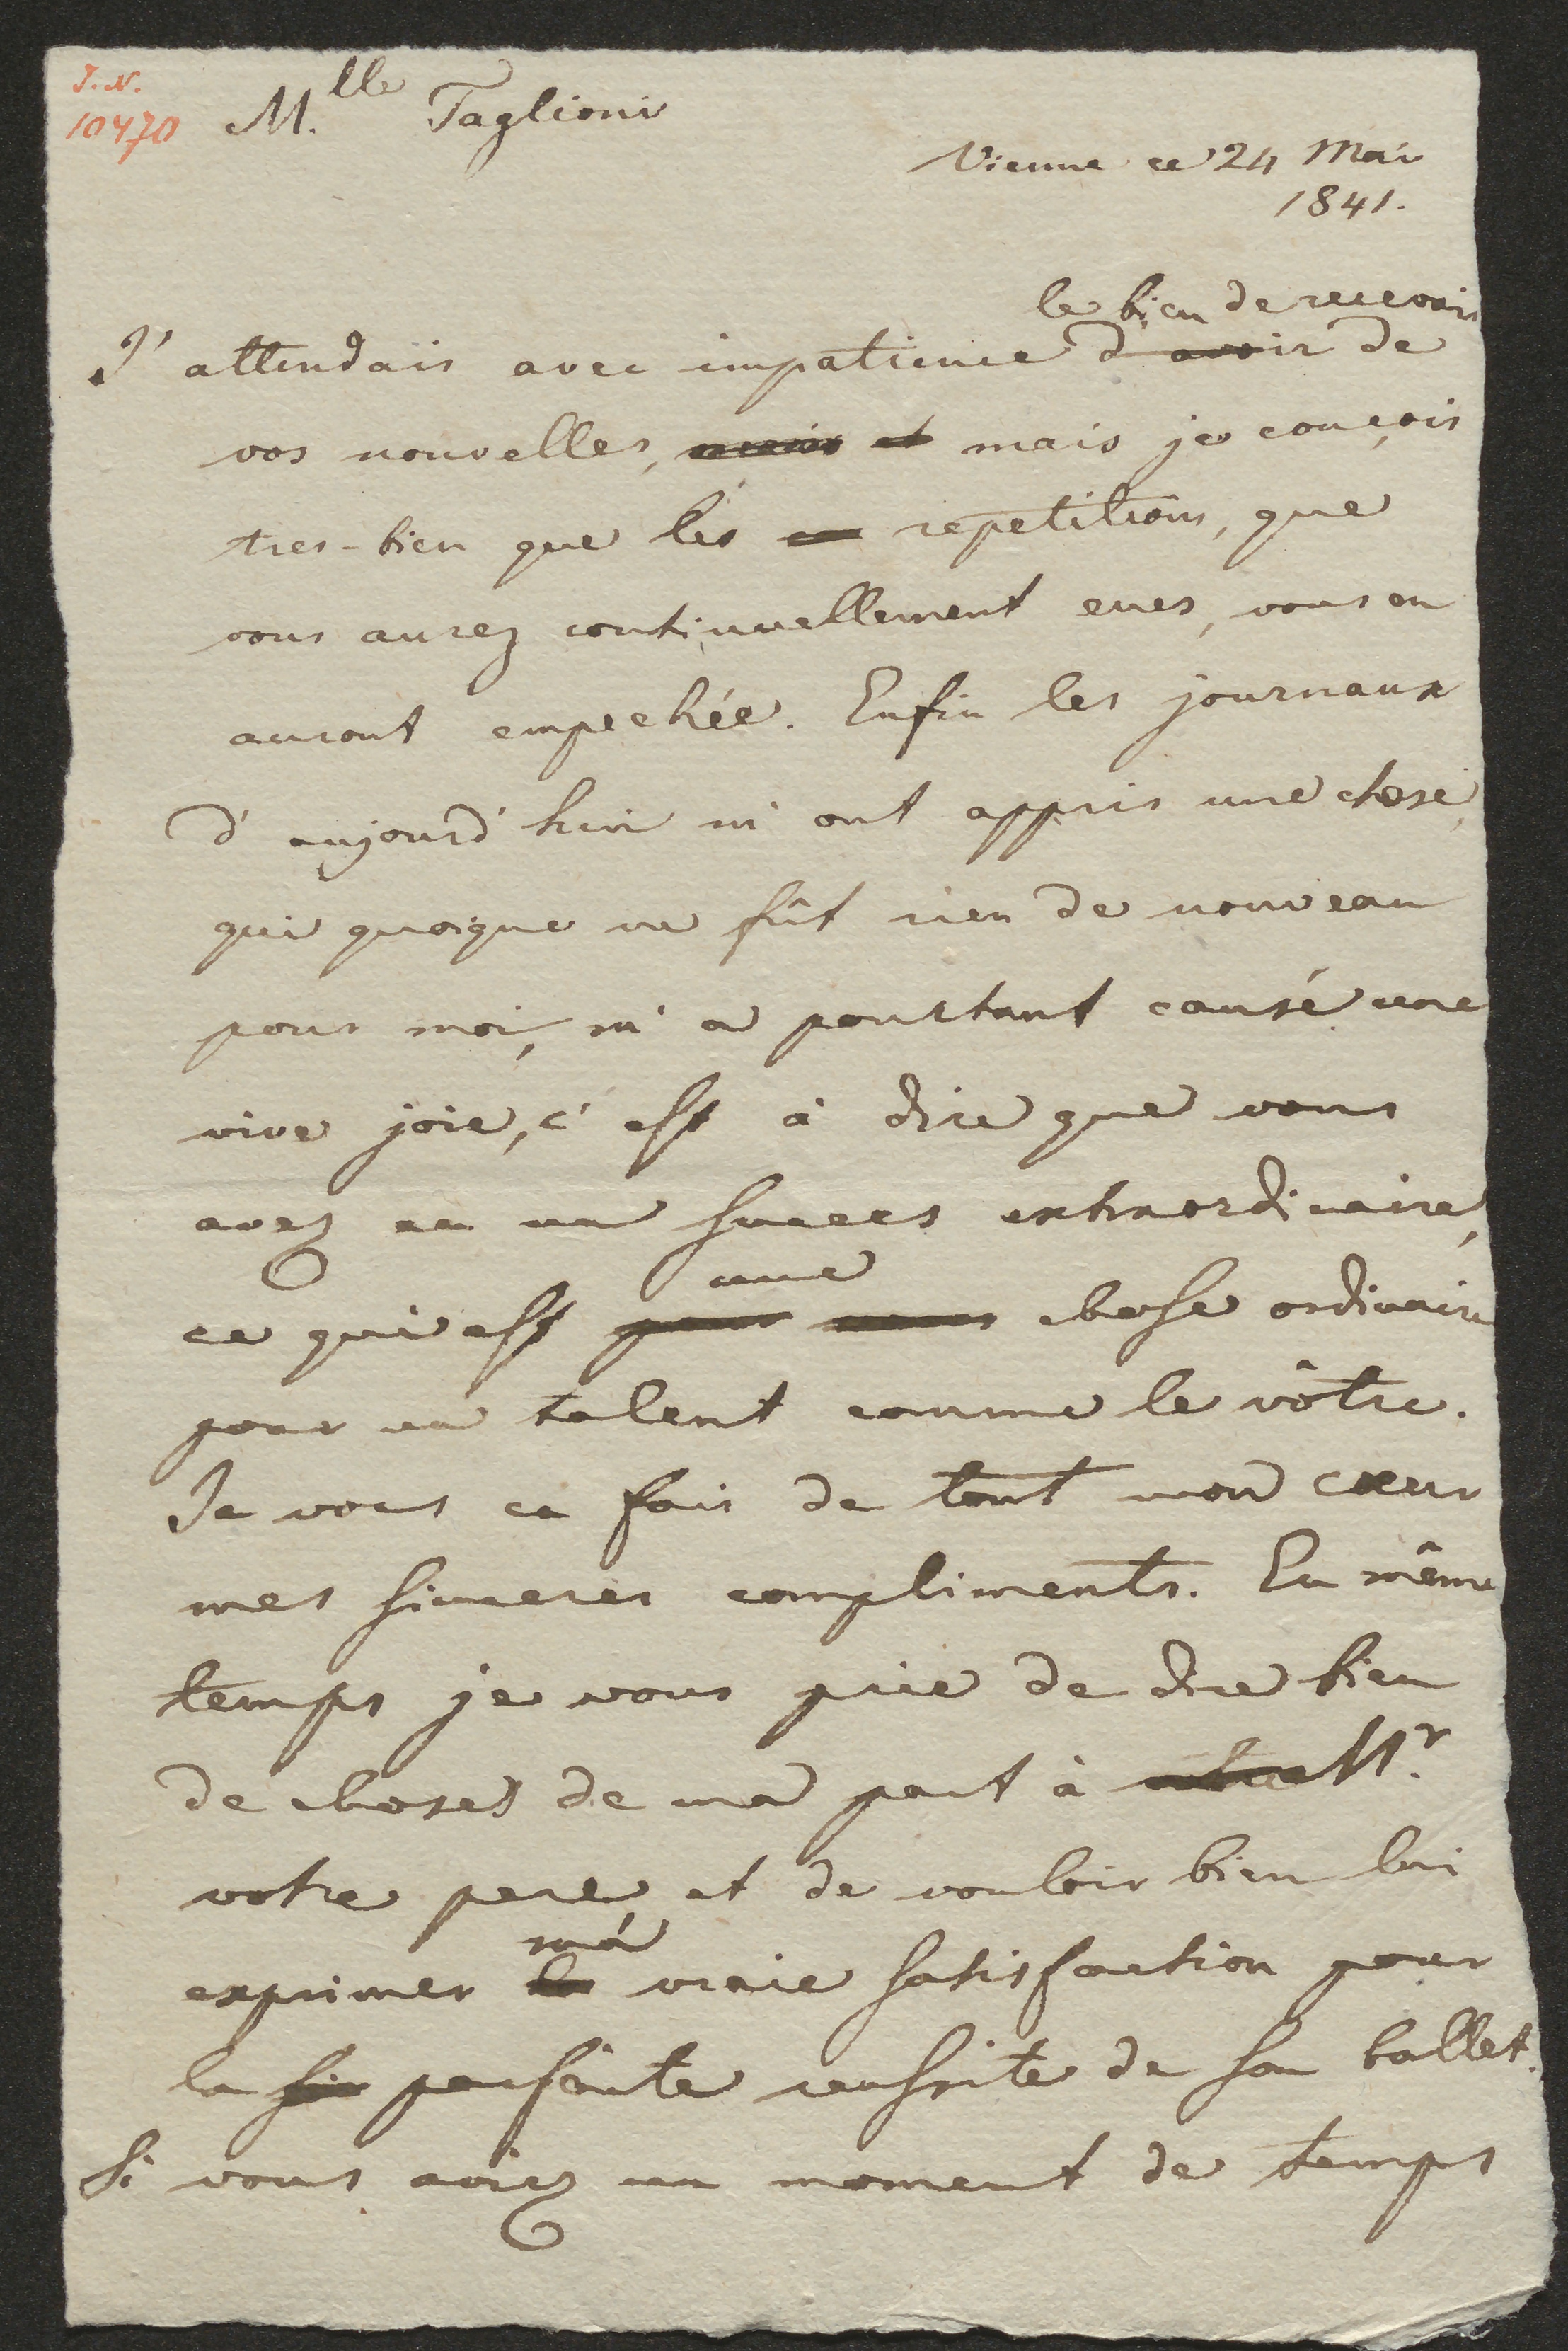 I.N.
10470
M.lle Taglioni
Vienne ce 24 Mai
1841.
le bien de recevoir
J'attendais avec impatience d'avoir de
vos nouvelles, mais et mais je conçois
tres-bien que les repetitions, que
vous aurez continuellement eues, vous en
auront empechée. Enfin les journaux
d'aujourd'hui m'ont appris une chose,
qui quoique ne fût rien de nouveau
pour moi, m'a pourtant causé une
vive joie, c'est à dire que vous
avez eu un succes extraordinaire,
une
ce qui est pour vous chose ordinaire
pour un talent comme le vôtre.
Je vous en fais de tout mon cœur
mes sinceres compliments. En même
temps je vous prie de dire bien
de choses de ma part à votre Mr.
votre pere, et de vouloir bien lui
ma
exprimer la vraie satisfaction pour
la parfaite reussite de son ballet.
Si vous aviez un moment de temps